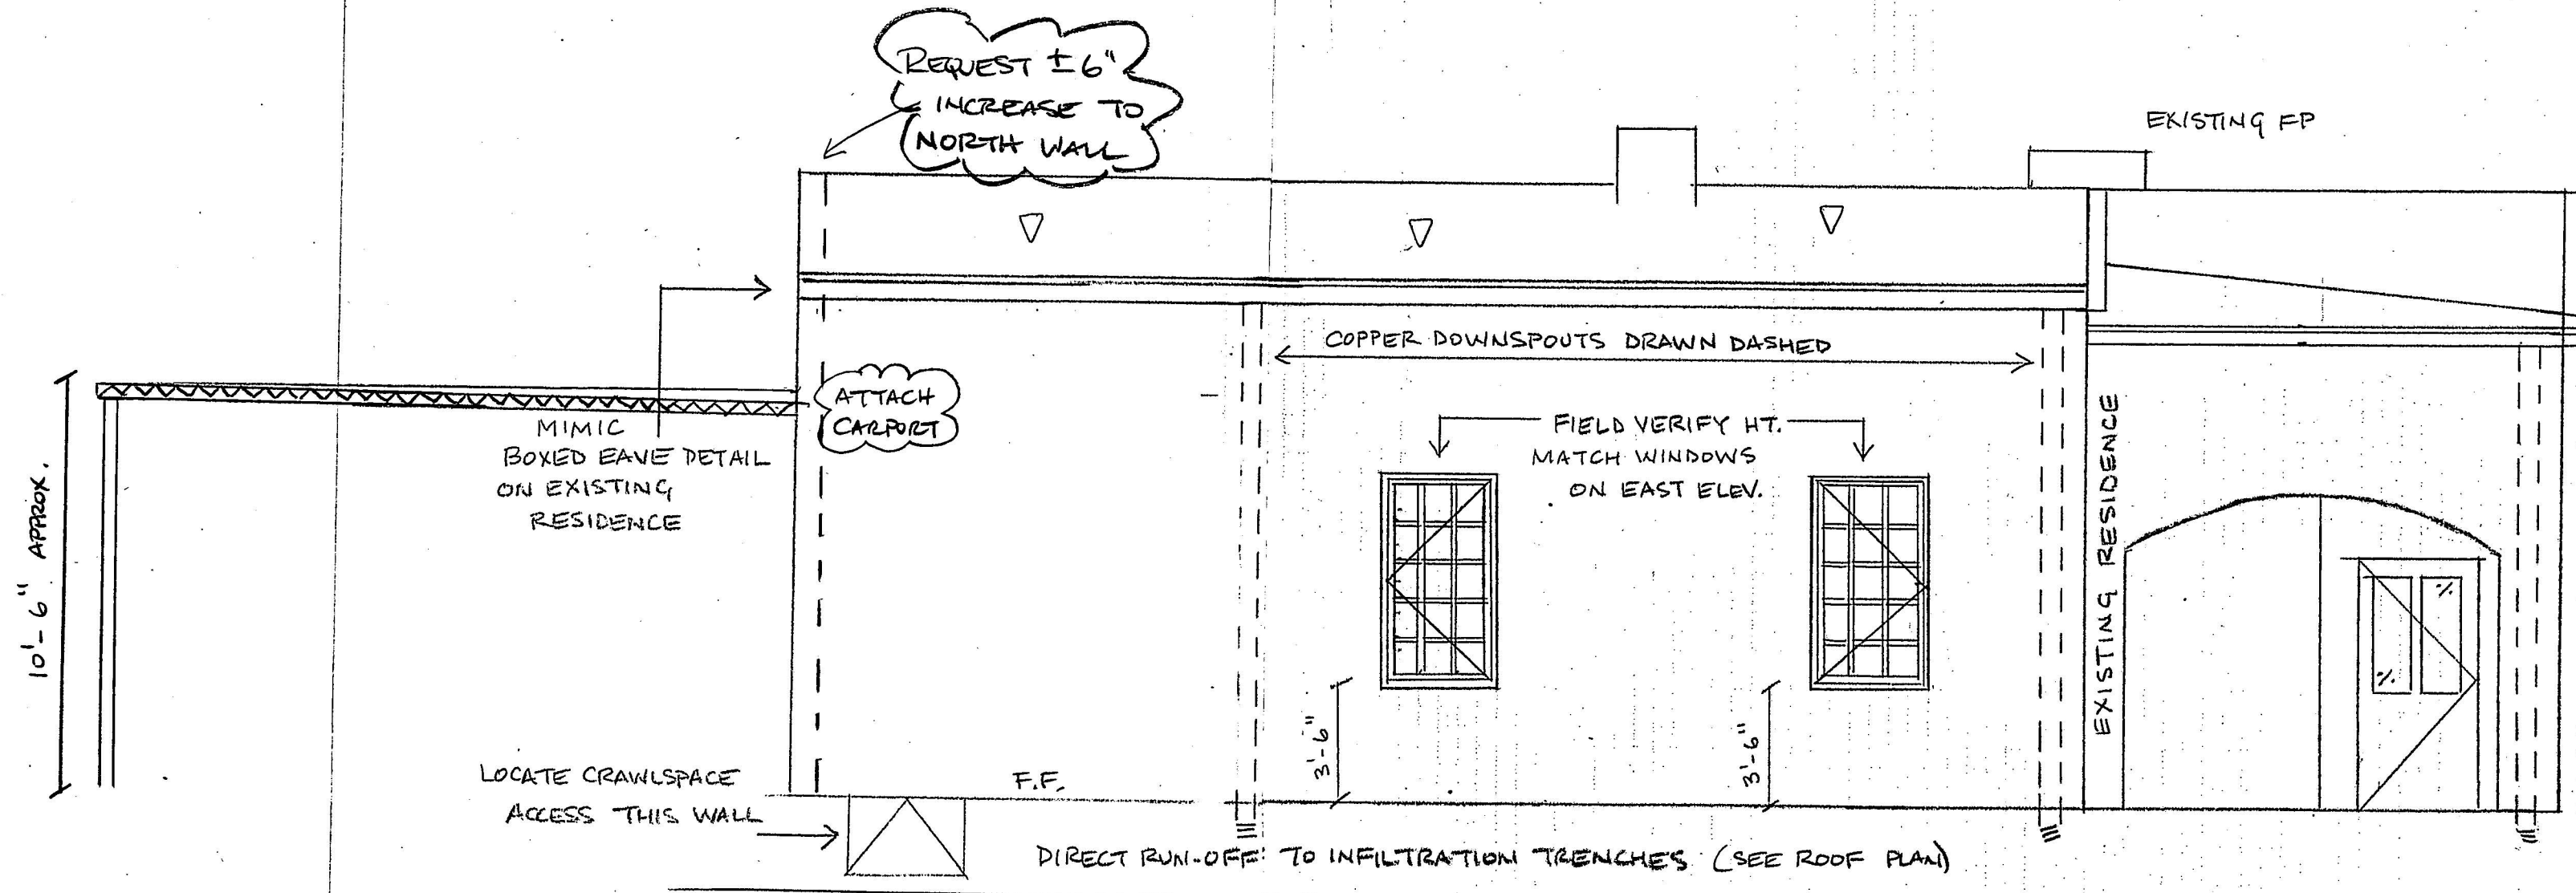 REQUEST ±6"
INCREASE TO
NORTH WALL
EXISTING FP
COPPER DOWNSPOUTS DRAWN DASHED
ATTACH
CARPORT
MIMIC
BOXED EAVE DETAIL
ON EXISTING
RESIDENCE
FIELD VERIFY HT.
MATCH WINDOWS
ON EAST ELEV.
EXISTING RESIDENCE
10'-6" APPROX.
3'-6"
3'-6"
LOCATE CRAWLSPACE
ACCESS THIS WALL
F.F.
DIRECT RUN-OFF TO INFILTRATION TRENCHES (SEE ROOF PLAN)